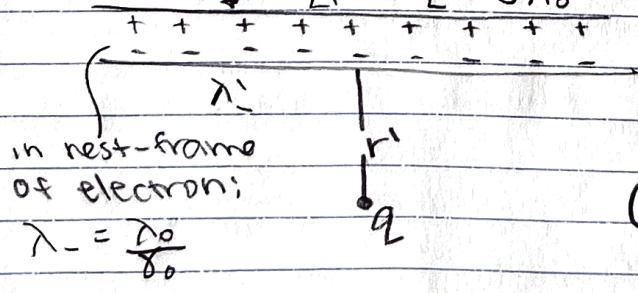 + + + + + + + + +
- - - - - - - - -
λ'_
r'
in rest-frame
of electron:
q
λ_ = λ₀/γ₀